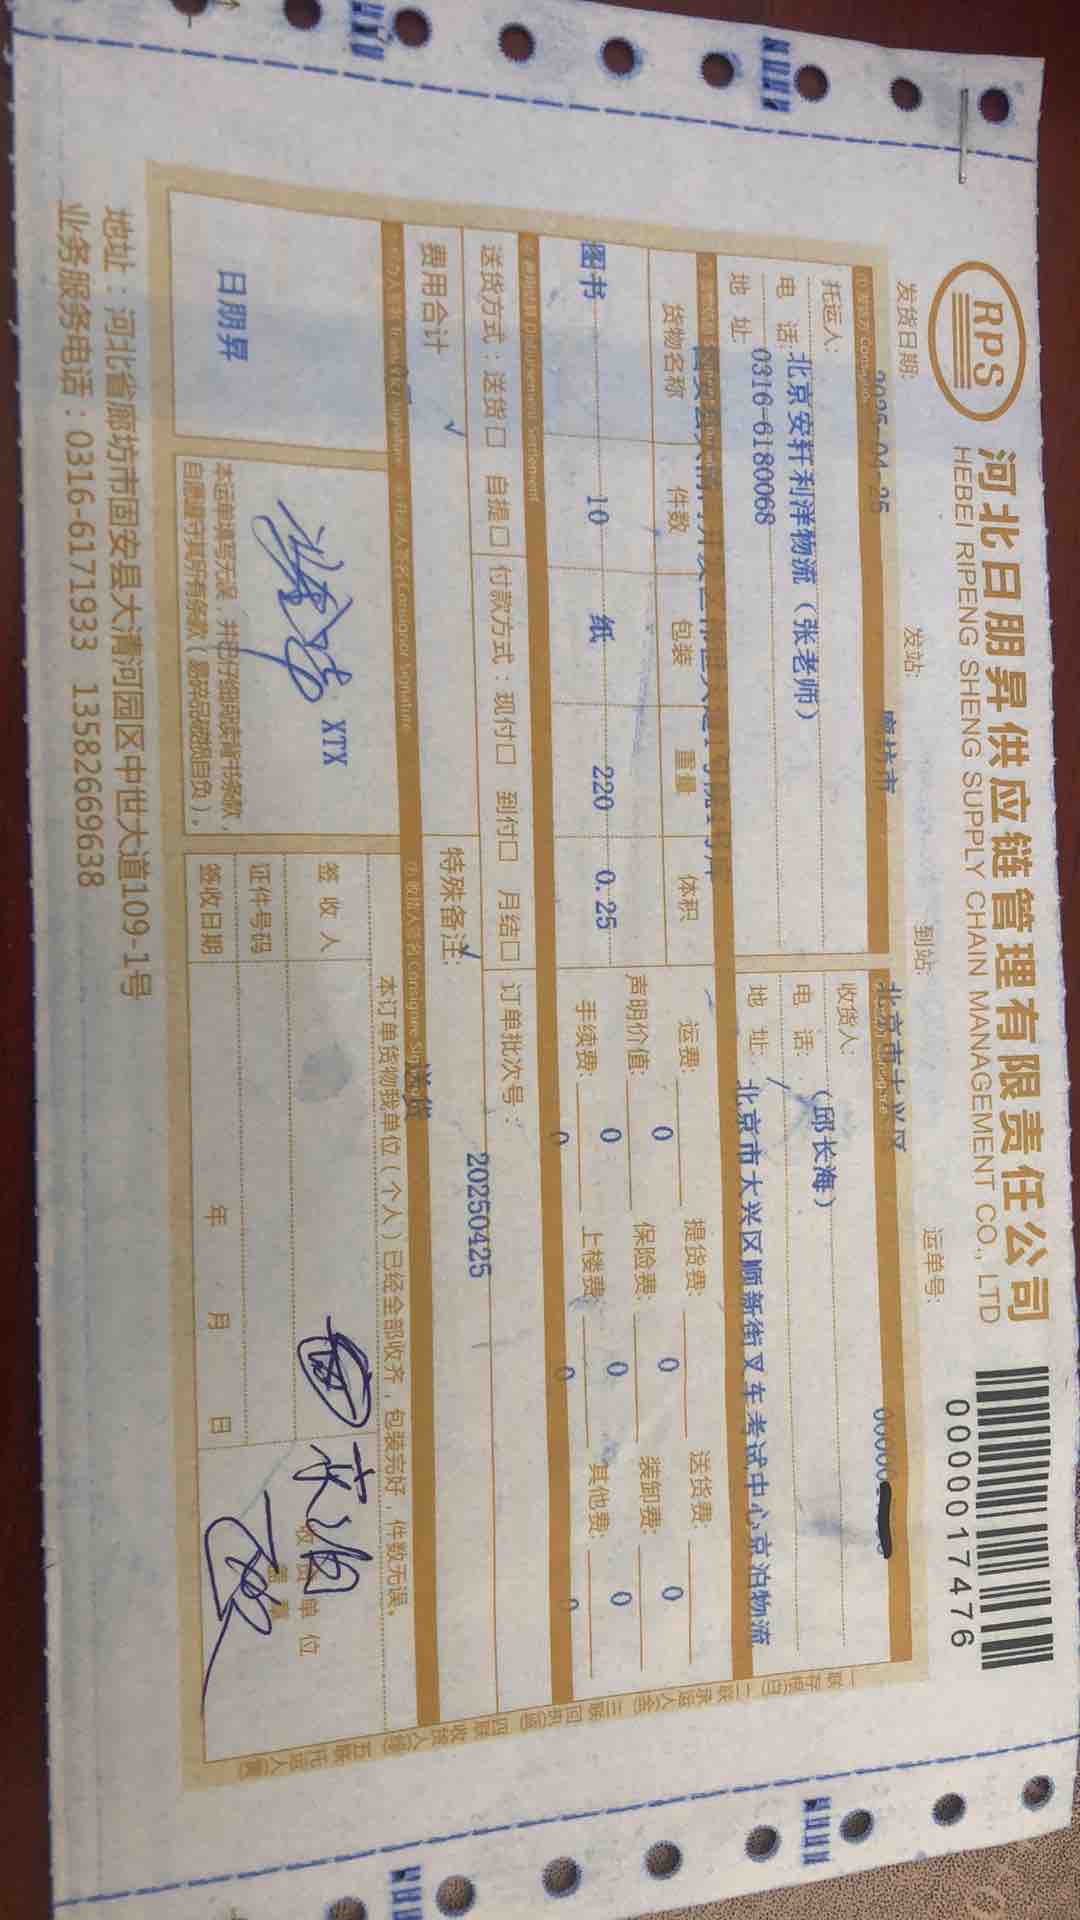 RPS
河北日朋昇供应链管理有限责任公司
HEBEI RIPENG SHENG SUPPLY CHAIN MANAGEMENT CO., LTD
0000017476
发货日期: 2025-04-25 发站: 廊坊市 到站: 北京市大兴区 运单号:
托运人: 北京安轩利洋物流（张老师）
电 话: 0316-6180068
地 址:
收货人: （邱长海）
电 话:
地 址: 北京市大兴区顺新街叉车考试中心京泊物流
货物名称 件数 包装 重量 体积
图书 10 纸 220 0.25
运费: 0 提货费: 0 送货费: 0
声明价值: 0 保险费: 0 装卸费: 0
手续费: 0 上楼费: 0 其他费: 0
送货方式：送货□ 自提□ 付款方式：现付□ 到付□ 月结□ 订单批次号：
20250425
费用合计 特殊备注:
送货
Consignor Signature
日朋昇
XTX
本运单填写无误，并已仔细阅读背书条款，
自愿遵守其所有条款（易碎品破损自负）。
本订单货物我单位（个人）已经全部收齐，包装完好，件数无误。
签 收 人
证件号码
签收日期 年 月 日
收货单位
盖 章
地址：河北省廊坊市固安县大清河园区中世大道109-1号
业务服务电话：0316-6171933 13582669638